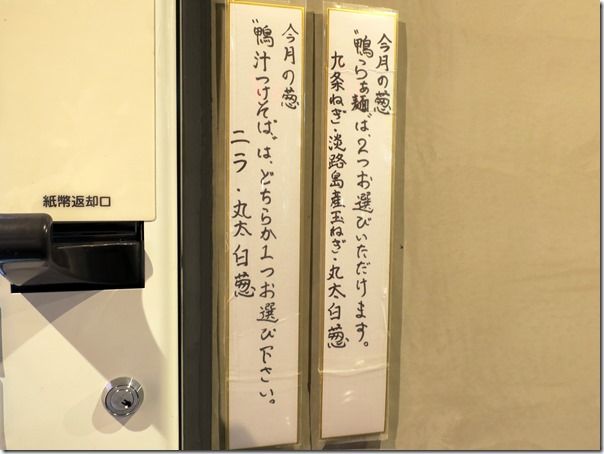 今月の葱
"鴨らぁ麺"は、2つお選びいただけます。
九条ねぎ・淡路島産玉ねぎ・丸太白葱
今月の葱
"鴨汁つけそば"は、どちらか1つお選び下さい。
ニラ・丸太白葱
紙幣返却口